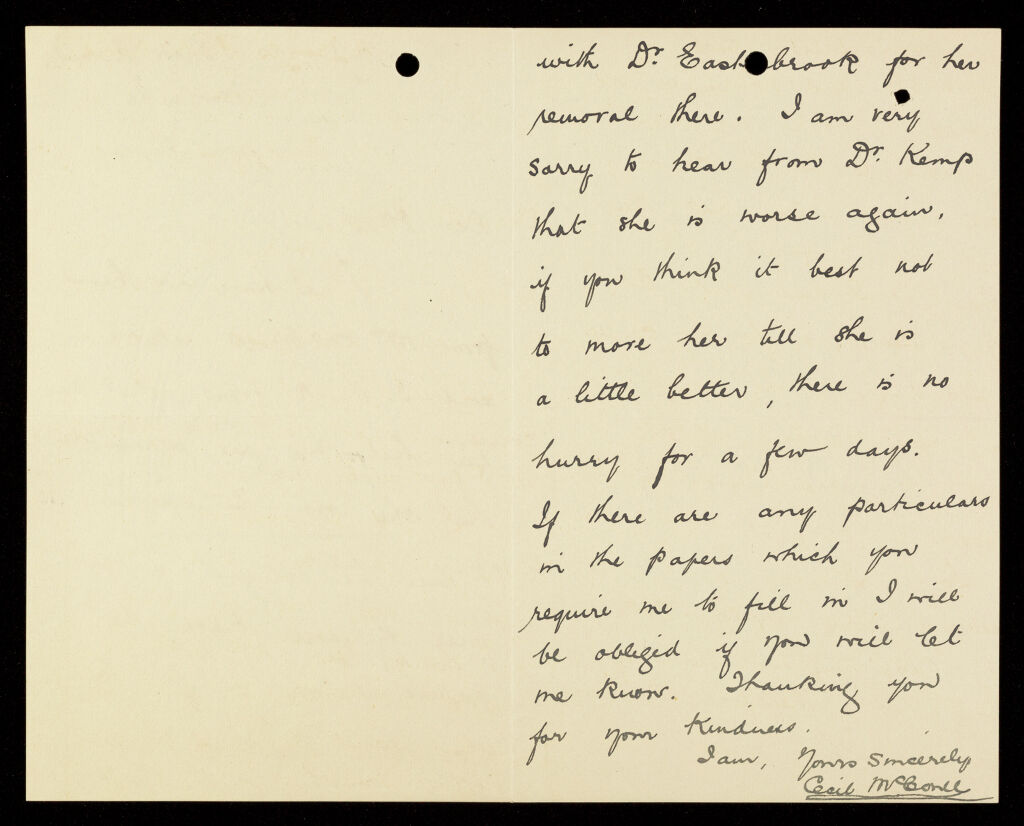 with Dr. Easterbrook for her
removal there. I am very
sorry to hear from Dr. Kemp
that she is worse again,
if you think it best not
to move her till she is
a little better, there is no
hurry for a few days.
If there are any particulars
in the papers which you
require me to fill in I will
be obliged if you will let
me know. Thanking you
for your kindness.
I am, Yours Sincerely
Cecil